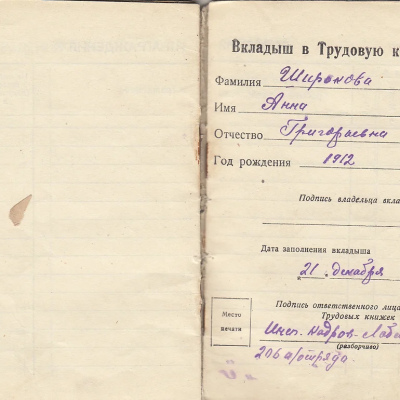 Вкладыш в Трудовую к
Фамилия Широкова
Имя Анна
Отчество Григорьевна
Год рождения 1912
Подпись владельца вкла
Дата заполнения вкладыша
21 декабря
Подпись ответственного лица
Трудовых книжек
Место
печати
Инсп. кадров
(разборчиво)
206 а/отряда